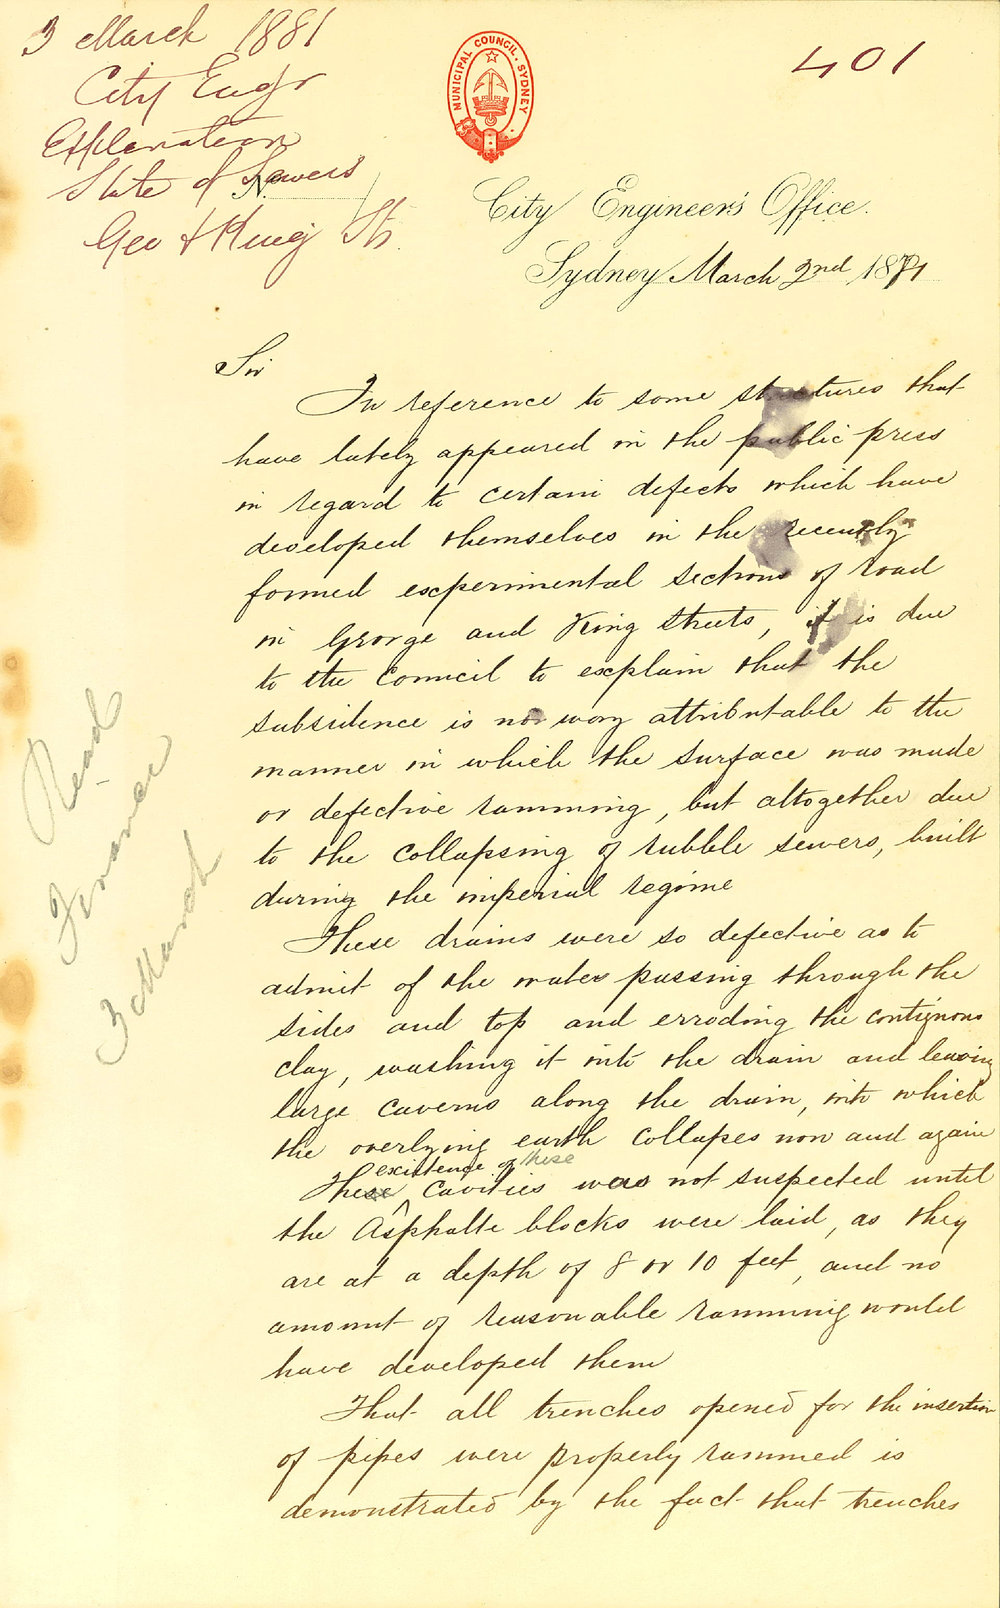 3 March 1881
City Engr
Explanation
State of Sewers
Geo & King Sts.
401
MUNICIPAL COUNCIL. SYDNEY
City Engineer's Office.
Sydney March 2nd 1881
Sir
In reference to some strictures that
have lately appeared in the public press
in regard to certain defects which have
developed themselves in the recently
formed experimental sections of road
in George and King Streets, it is due
to the Council to explain that the
subsidence is no way attributable to the
manner in which the surface was made
or defective ramming, but altogether due
to the collapsing of rubble sewers, built
during the imperial regime
These drains were so defective as to
admit of the water passing through the
sides and top and erroding the contignous
clay, washing it into the drain and leaving
large caverns along the drain, into which
the overlying earth collapses now and again
existence of these
These cavities was not suspected until
the Asphalte blocks were laid, as they
are at a depth of 8 or 10 feet, and no
amount of reasonable ramming would
have developed them
That all trenches opened for the insertion
of pipes were properly rammed is
demonstrated by the fact that trenches
Read
Finance
3 March